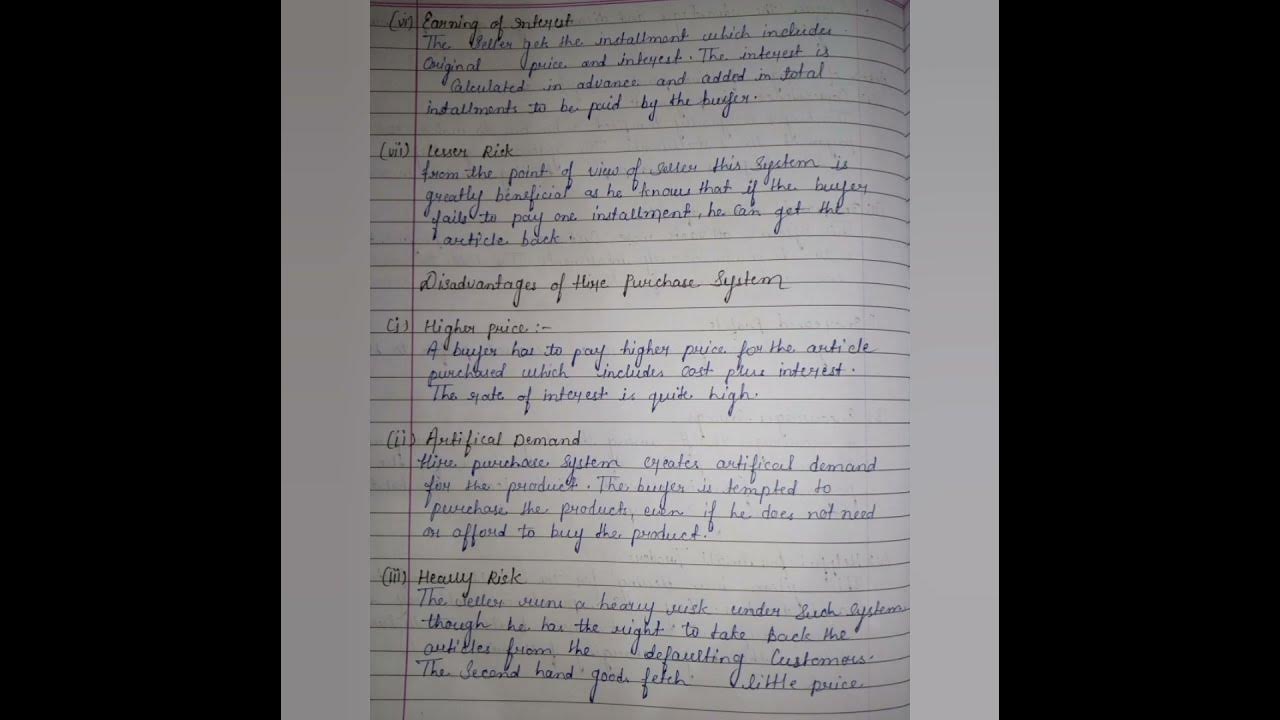 (vi) Earning of Interest
The Seller get the installment which includes
Original price and interest. The interest is
Calculated in advance and added in total
installments to be paid by the buyer.
(vii) Lesser Risk
from the point of view of seller this System is
greatly beneficial as he knows that if the buyer
fails to pay one installment, he can get the
article back.
Disadvantages of Hire Purchase System
(i) Higher price :-
A buyer has to pay higher price for the article
purchased which includes cost plus interest.
The rate of interest is quite high.
(ii) Artifical Demand
Hire purchase system creates artifical demand
for the product. The buyer is tempted to
purchase the products, even if he does not need
or afford to buy the product.
(iii) Heavy Risk
The seller runs a heavy risk under Such System
though he has the right to take back the
articles from the defaulting Customers.
The Second hand goods fetch little price